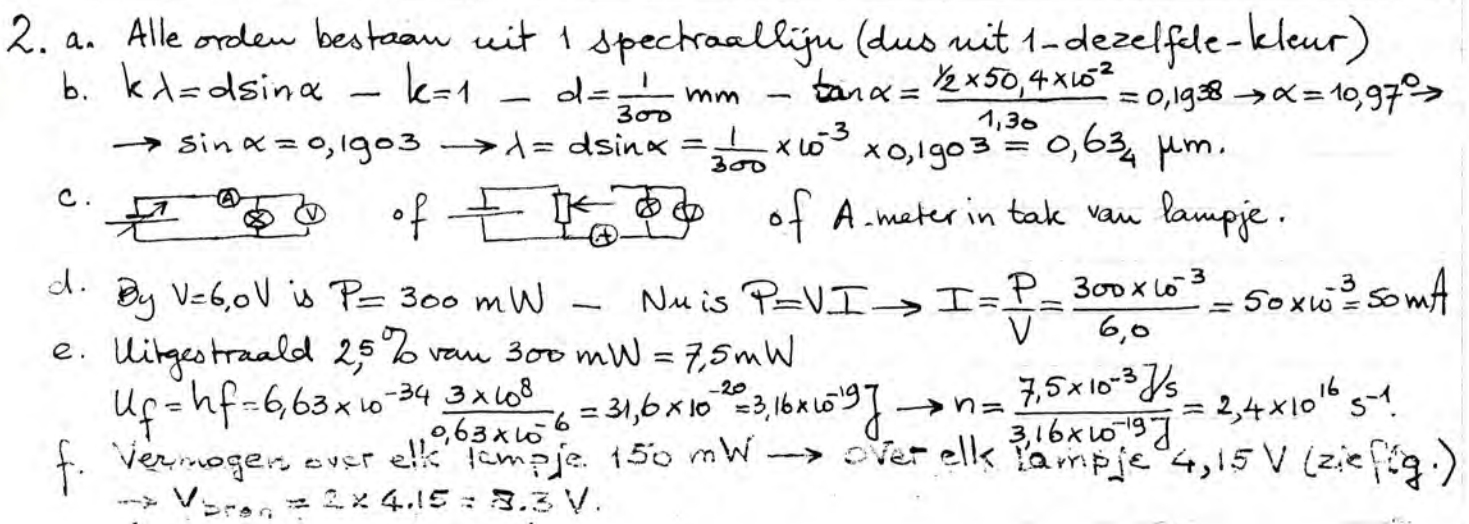 2. a. Alle orden bestaan uit 1 spectraallijn (dus uit 1-dezelfde-kleur)
b. kλ=dsinα – k=1 – d=1/300 mm – tanα=(½×50,4×10⁻²)/1,30=0,1938→α=10,97°→
→ sinα=0,1903 → λ=dsinα=1/300 ×10⁻³ ×0,1903=0,63₄ μm.
c. A V of A V of A-meter in tak van lampje.
d. By V=6,0V is P=300 mW – Nu is P=VI → I=P/V=(300×10⁻³)/6,0=50×10⁻³=50mA
e. Uitgestraald 2,5% van 300 mW=7,5mW
Uf=hf=6,63×10⁻³⁴ (3×10⁸)/(0,63×10⁻⁶)=31,6×10⁻²⁰=3,16×10⁻¹⁹J → n=(7,5×10⁻³J/s)/(3,16×10⁻¹⁹J)=2,4×10¹⁶ s⁻¹.
f. Vermogen over elk lampje 150 mW → over elk lampje 4,15 V (zie fig.)
→ Vbron = 2×4.15 = 8.3 V.